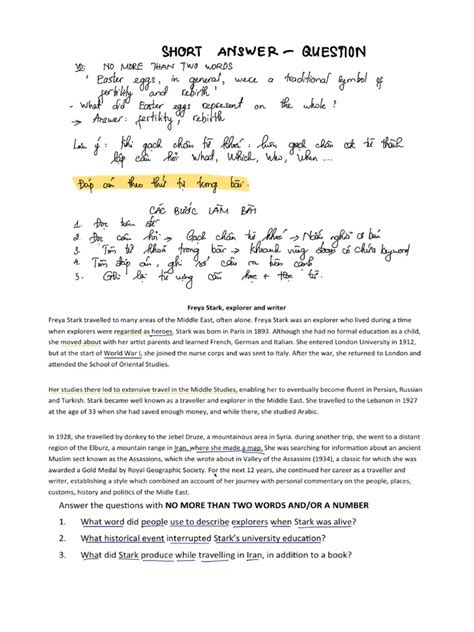 SHORT ANSWER – QUESTION
VD: NO MORE THAN TWO WORDS
' Easter eggs, in general, were a traditional symbol of
fertility and rebirth'
- What did Easter eggs represent on the whole ?
→ Answer: fertility, rebirth
Lưu ý : Khi gạch chân từ khoá : luôn gạch chân các từ thành
lập câu hỏi What, Which, Who, When ...
Đáp án theo thứ tự trong bài.
CÁC BƯỚC LÀM BÀI
1. Đọc
2. Đọc câu hỏi → Gạch chân từ khoá → Nghĩa cơ bản
3. Tìm từ khoá trong bài → Khoanh vùng có chứa keyword
4. Tìm đáp án, ghi số câu ra bên cạnh
5. Ghi lại từ vựng cần học +
Freya Stark, explorer and writer
Freya Stark travelled to many areas of the Middle East, often alone. Freya Stark was an explorer who lived during a time
when explorers were regarded as heroes. Stark was born in Paris in 1893. Although she had no formal education as a child,
she moved about with her artist parents and learned French, German and Italian. She entered London University in 1912,
but at the start of World War I, she joined the nurse corps and was sent to Italy. After the war, she returned to London and
attended the School of Oriental Studies.
Her studies there led to extensive travel in the Middle Studies, enabling her to eventually become fluent in Persian, Russian
and Turkish. Stark became well known as a traveller and explorer in the Middle East. She travelled to the Lebanon in 1927
at the age of 33 when she had saved enough money, and while there, she studied Arabic.
In 1928, she travelled by donkey to the Jebel Druze, a mountainous area in Syria. during another trip, she went to a distant
region of the Elburz, a mountain range in Iran, where she made a map. She was searching for information about an ancient
Muslim sect known as the Assassins, which she wrote about in Valley of the Assassins (1934), a classic for which she was
awarded a Gold Medal by Royal Geographic Society. For the next 12 years, she continued her career as a traveller and
writer, establishing a style which combined an account of her journey with personal commentary on the people, places,
customs, history and politics of the Middle East.
Answer the questions with NO MORE THAN TWO WORDS AND/OR A NUMBER
1. What word did people use to describe explorers when Stark was alive?
2. What historical event interrupted Stark's university education?
3. What did Stark produce while travelling in Iran, in addition to a book?